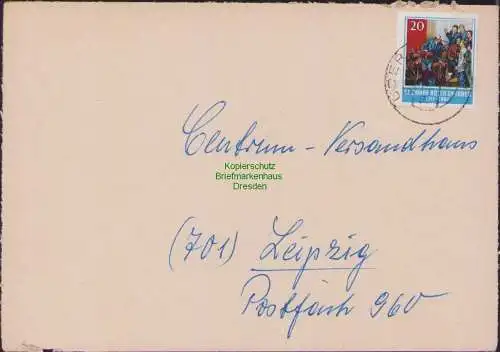 20
Centrum-Versandhaus
Kopierschutz
Briefmarkenhaus
Dresden
(701) Leipzig
Postfach 960